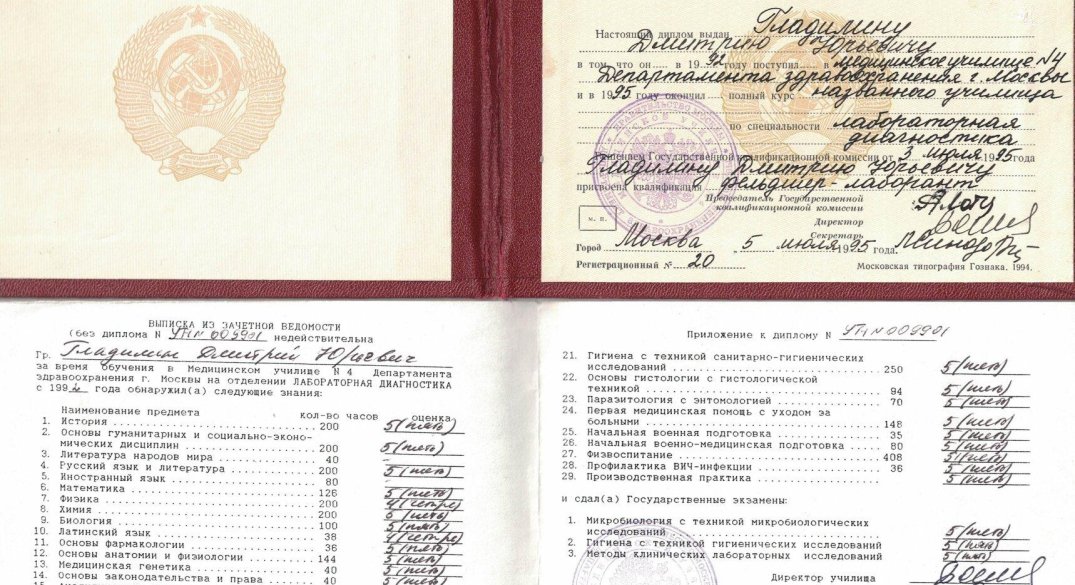 Настоящий диплом выдан Гладилину
Дмитрию Юрьевичу
в том, что он в 1992 году поступил в медицинское училище №4
Департамента здравоохранения г. Москвы
и в 1995 году окончил полный курс названного училища
по специальности лабораторная
диагностика
Решением Государственной квалификационной комиссии от 3 июля 1995 года
Гладилину Дмитрию Юрьевичу
присвоена квалификация фельдшер-лаборант
Председатель Государственной
квалификационной комиссии
Директор
Секретарь
м. п.
Город Москва 5 июля 1995 года.
Регистрационный № 20
Московская типография Гознака. 1994.
ВЫПИСКА ИЗ ЗАЧЕТНОЙ ВЕДОМОСТИ
(без диплома N 009901 недействительна
Гр. Гладилин Дмитрий Юрьевич
за время обучения в Медицинском училище N 4 Департамента
здравоохранения г. Москвы на отделении ЛАБОРАТОРНАЯ ДИАГНОСТИКА
с 1992 года обнаружил(а) следующие знания:
Наименование предмета кол-во часов оценка
1. История 200 5 (пять)
2. Основы гуманитарных и социально-эконо-
мических дисциплин 200 5 (пять)
3. Литература народов мира 40 -
4. Русский язык и литература 200 5 (пять)
5. Иностранный язык 80 -
6. Математика 126 5 (пять)
7. Физика 200 4 (четыре)
8. Химия 200 5 (пять)
9. Биология 100 5 (пять)
10. Латинский язык 38 4 (четыре)
11. Основы фармакологии 36 5 (пять)
12. Основы анатомии и физиологии 144 5 (пять)
13. Медицинская генетика 40 5 (пять)
14. Основы законодательства и права 40 5 (пять)
Приложение к диплому N 009901
21. Гигиена с техникой санитарно-гигиенических
исследований 250 5 (пять)
22. Основы гистологии с гистологической
техникой 94 5 (пять)
23. Паразитология с энтомологией 70 5 (пять)
24. Первая медицинская помощь с уходом за
больными 148 5 (пять)
25. Начальная военная подготовка 35 5 (пять)
26. Начальная военно-медицинская подготовка 80 5 (пять)
27. Физвоспитание 408 5 (пять)
28. Профилактика ВИЧ-инфекции 36 5 (пять)
29. Производственная практика 5 (пять)
и сдал(а) Государственные экзамены:
1. Микробиология с техникой микробиологических
исследований 5 (пять)
2. Гигиена с техникой гигиенических исследований 5 (пять)
3. Методы клинических лабораторных исследований 5 (пять)
Директор училища